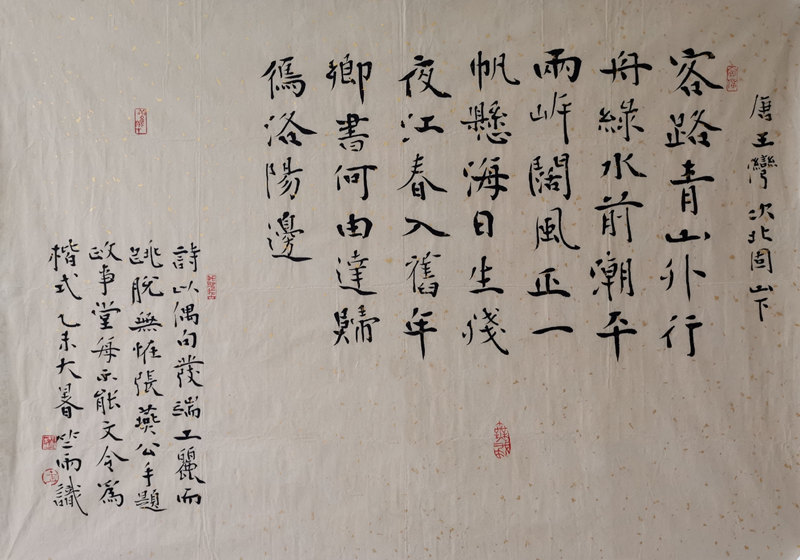 唐王灣次北固山下
客路青山外行
舟綠水前潮平
兩岸闊風正一
帆懸海日生殘
夜江春入舊年
鄉書何由達歸
鴈洛陽邊
詩以偶句發端工麗而
跳脫無怪張燕公手題
政事堂每示能文令為
楷式乙未大暑竺雨識